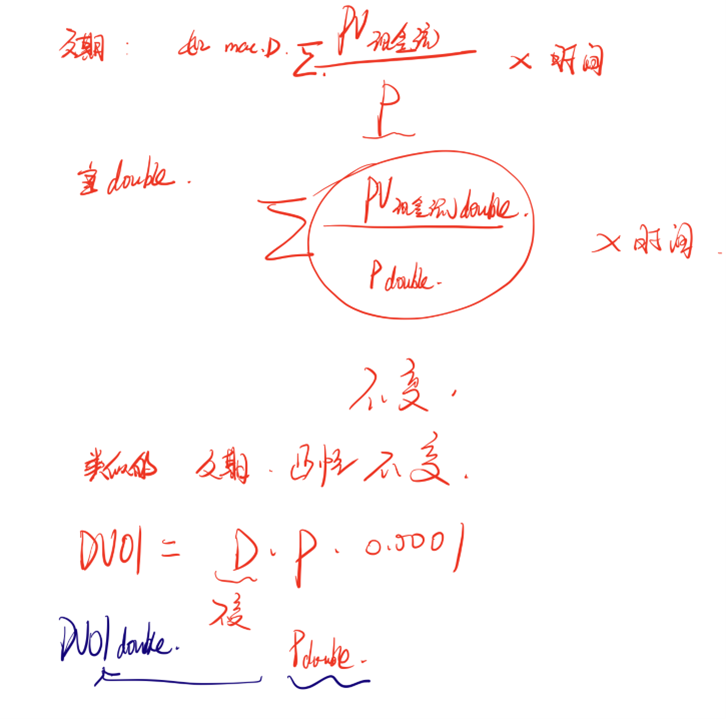 久期： 如 mac.D. Σ PV现金流 / P × 时间
double.
Σ PV现金流double. / P double. × 时间.
不变.
类似的 久期. 凸性 不变.
DV01 = D. P. 0.0001
不变
DV01 double. P double.